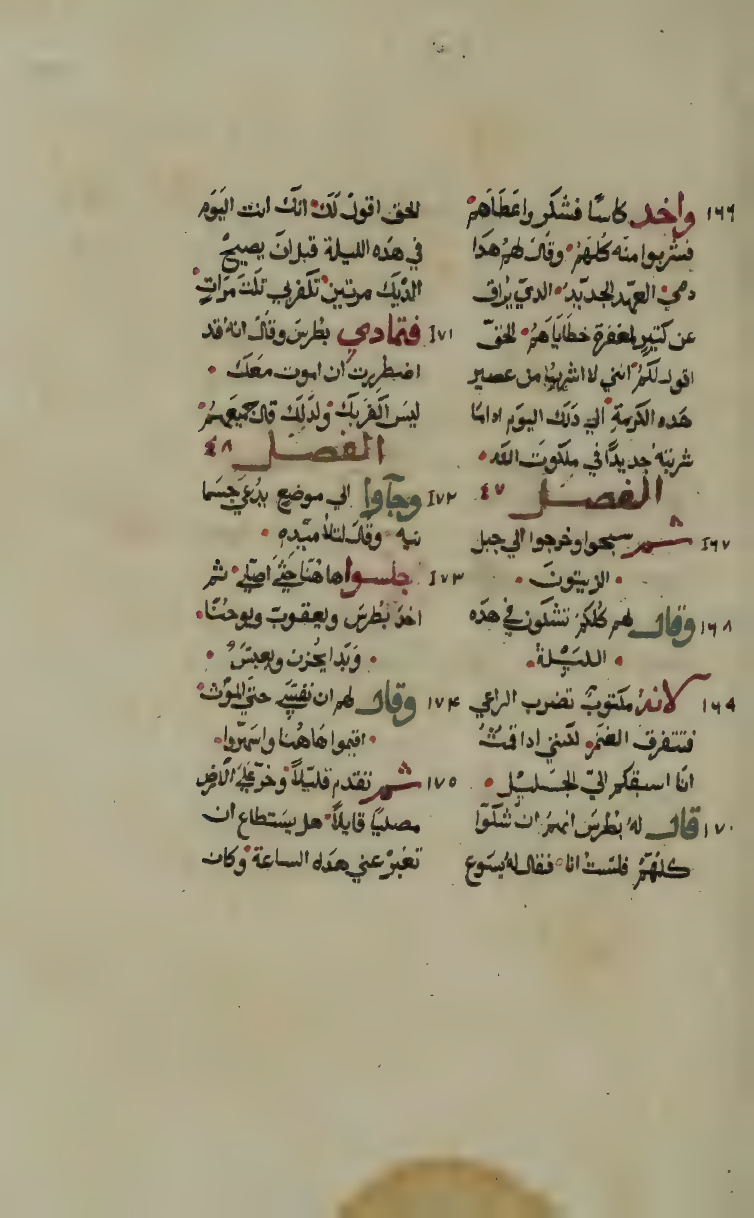 ١٦٦ واخد كاسًا فشكر واعطاهم
فشربوا منه كلهم وقال لهم هدا
دمي العهد الجديد الدي يُراق
عن كتير لمغفرة خطاياهم الحق
اقول لكم انني لا اشرب من عصير
هده الكرمة الي دلك اليوم اداما
شربته جديدًا في ملكوت الله
الفصل ٤٧
١٦٧ ثم سبحوا وخرجوا الي جبل
الزيتون
١٦٨ وقال لهم كلكم تشكون في هده
الليلة
١٦٩ لانه مكتوب تضرب الراعي
فتتفرق الغنم لكنني ادا قمت
انا اسبقكم الي الجليل
١٧٠ قال له بطرس انهم ان شكوا
كلهم فلست انا فقال له يسوع
الحق اقول لك انك انت اليوم
في هده الليلة قبل ان يصيح
الديك مرتين تكفر بي تلت مرات
١٧١ فتمادي بطرس وقال انه قد
اضطررت ان اموت معك
ليس اكفر بك ولدلك قال جميعهم
الفصل ٤٨
١٧٢ وجآوا الي موضع يدعي جسما
نيه وقال لتلاميده
١٧٣ جلسوا هاهنا حتي اصلي ثم
اخد بطرس ويعقوب ويوحنا
وبدا يحزن ويعبس
١٧٤ وقال لهم ان نفسي حتي الموت
اقيموا هاهنا واسهروا
١٧٥ ثم تقدم قليلاً وخر علي الارض
مصليًا قايلاً هل يستطاع ان
تعبر عني هده الساعة وكان